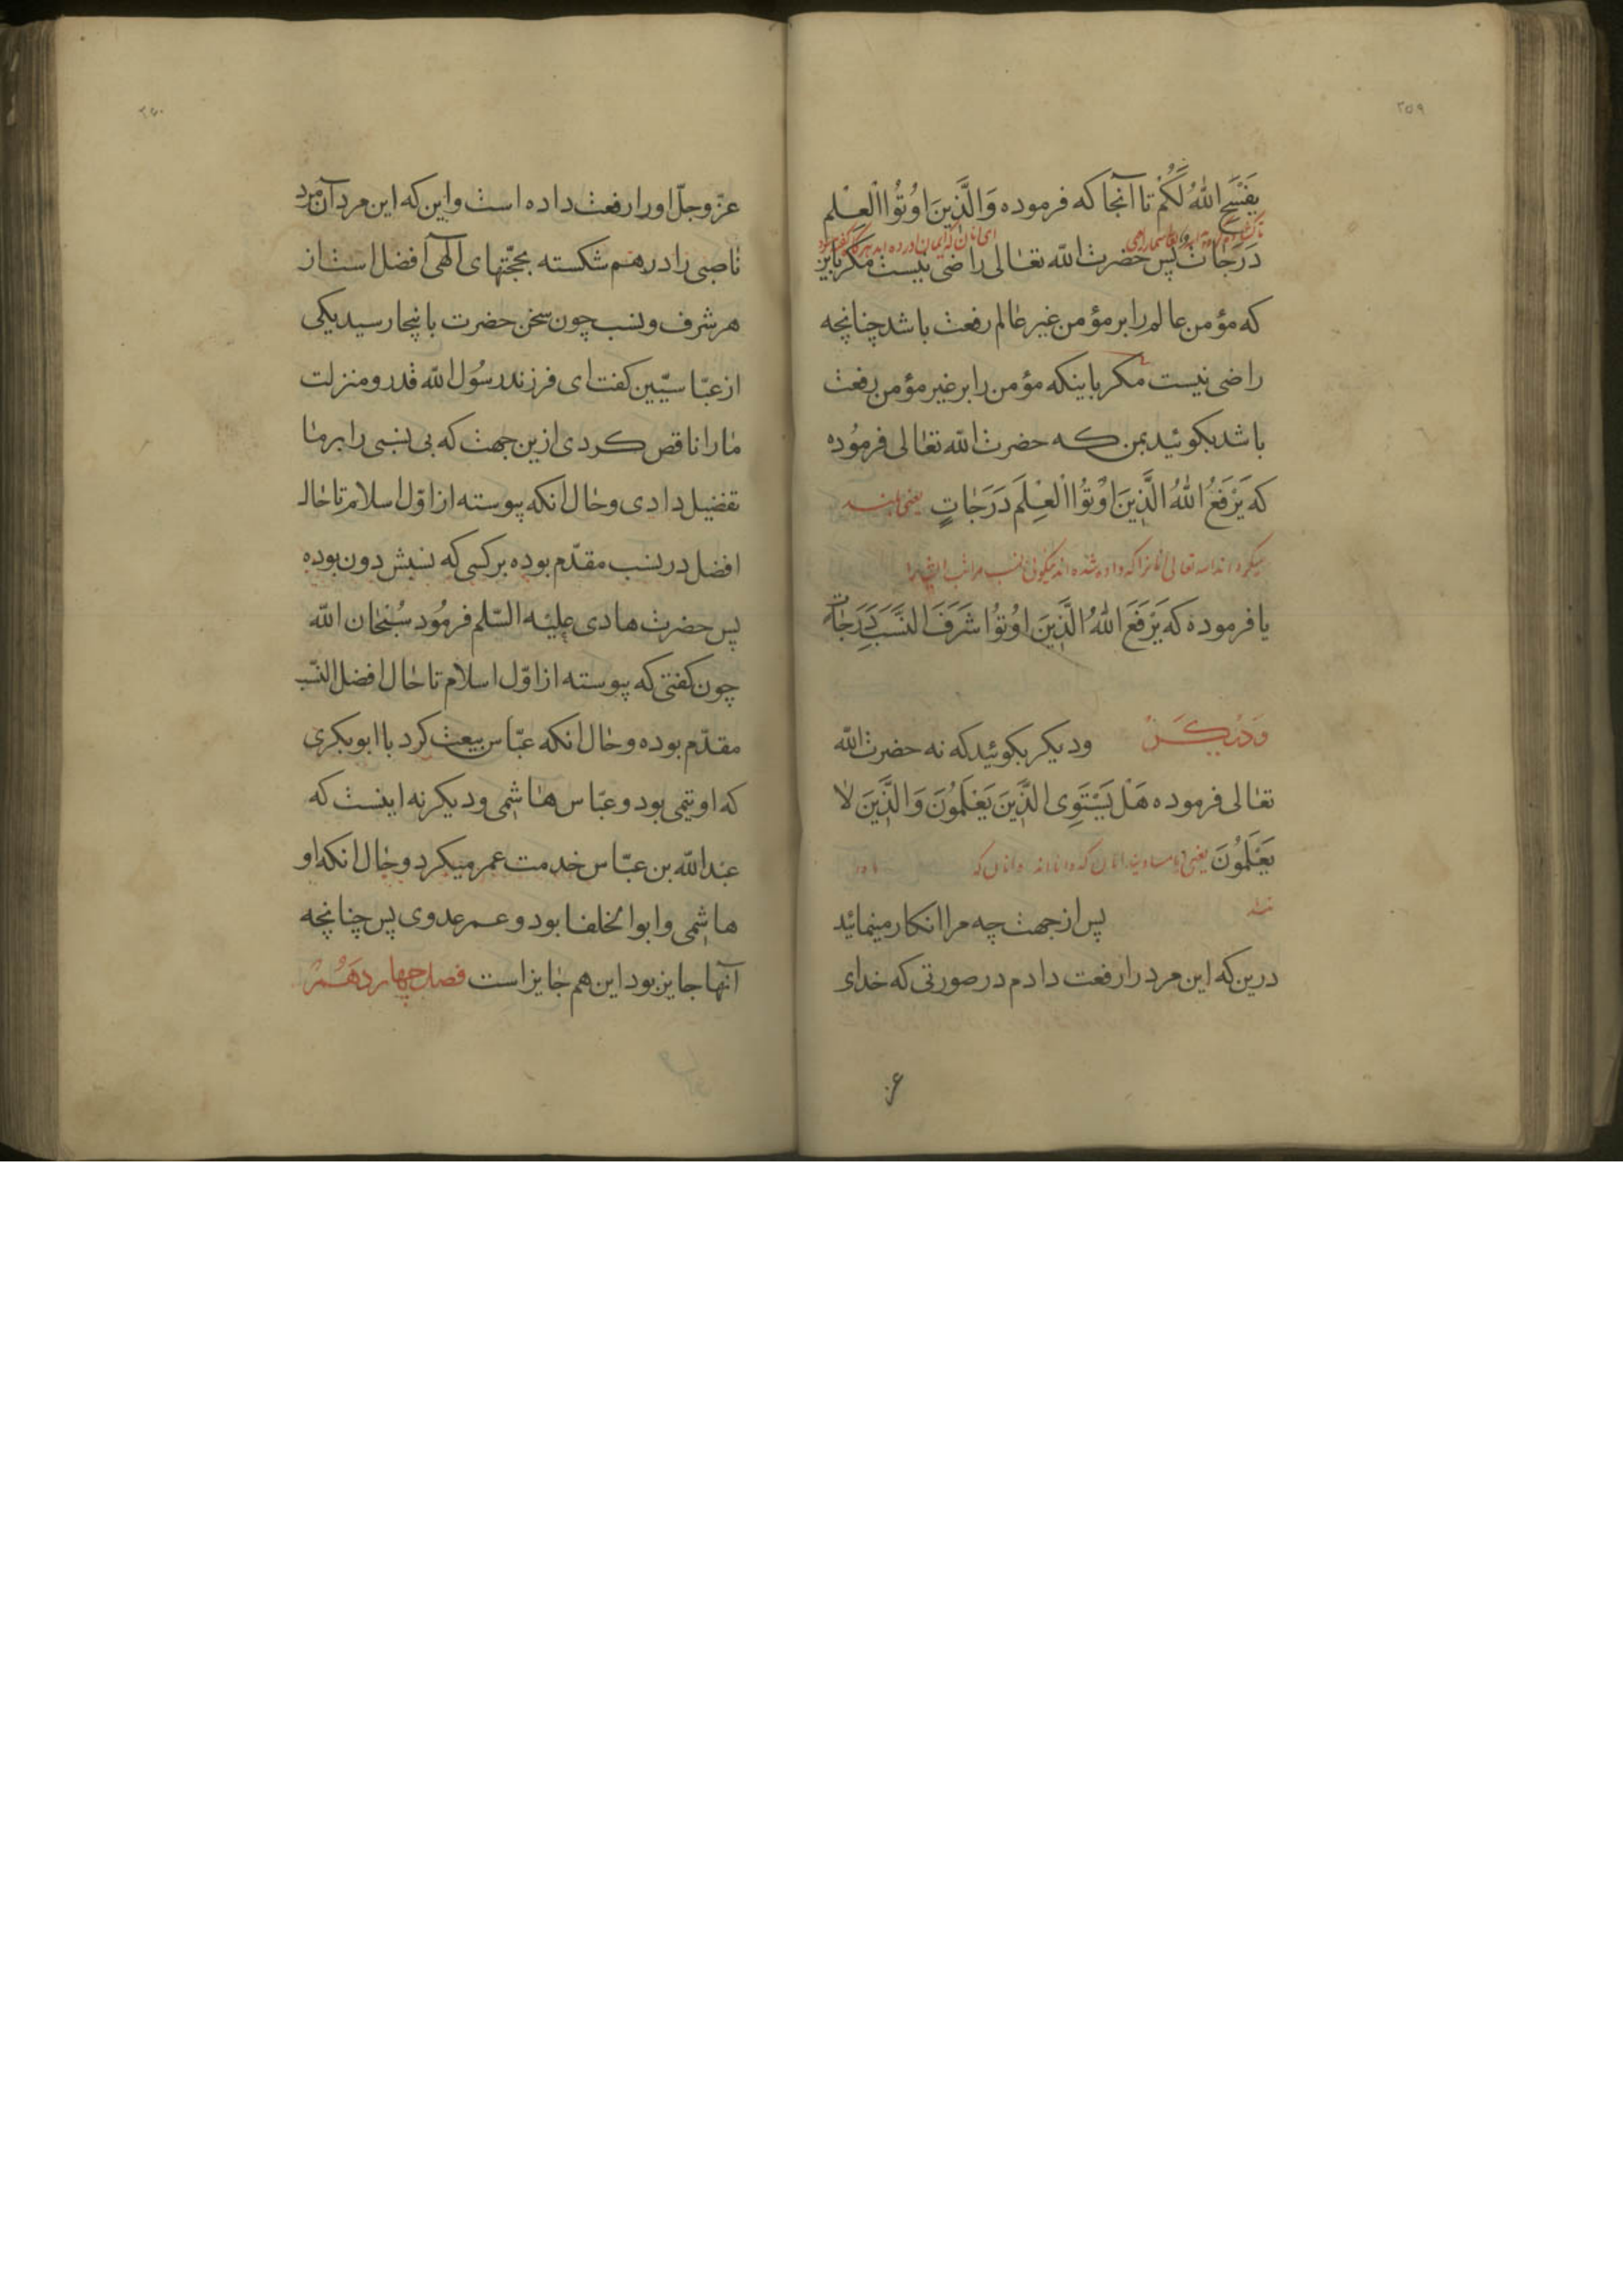 ۲۵۹
یَفْسَحِ اللّٰهُ لَكُمْ تا آنجا که فرموده وَالَّذِینَ اوُتُوا الْعِلم
دَرَجات پس حضرت اللّه تعالی راضی نیست مکر باین
که مؤمن عالم را بر مؤمن غیر عالم رفعت باشد چنانچه
راضی نیست مکر باینکه مؤمن را بر غیر مؤمن رفعت
باشد بکوئید بمن که حضرت اللّه تعالی فرموُده
که یَرْفَعُ اللّٰهُ الَّذِینَ اوُتُوا الْعِلَم دَرَجٰاتٍ یعنی بلند
میکرداند اللّه تعالی
یا فرموده که یَرْفَعَ اللّٰهُ الَّذِینَ اوُتوُا شَرَفَ النَّسَبِ دَرَجٰات
وَدیٖکَر ودیکر بکوئید که نه حضرت اللّه
تعٰالی فرموده هَلْ یَسْتَوِی الَّذِینَ یَعْلَموُنَ وَالَّذِینَ لاٰ
یَعْلَموُنَ یعنی
پس از جهت چه مرا انکار مینمائید
درین که این مرد را رفعت دادم در صورتی که خدای
۲۶۰
عزّوجلّ او را رفعت داده است و این که این مرد آن مرد
ناصبی را در هم شکسته بحجّتهای الٓهی افضل است از
هر شرف و نسب چون سخن حضرت باینجا رسید یکی
از عبّاسیّین کفت ای فرزند رسُول اللّه قدر و منزلت
مٰا را ناقص کردی ازین جهت که بی نسبی را بر مٰا
تفضیل دادی و حٰال انکه پیوسته از اوّل اسلام تا حٰال
افضل در نسب مقدّم بوده بر کسی که نسبش دون بوده
پس حضرت هادی علیه السّلم فرمُود سُبْحٰان اللّه
چون کفتی که پیوسته از اوّل اسلام تا حٰال افضل النّسب
مقدّم بوده و حٰال انکه عبّاس بیعت کرد با ابوبکری
که او تیمی بود و عبّاس هٰاشمی و دیکر نه اینست که
عبداللّه بن عبّاس خدمت عمر میکرد و حٰال انکه او
هاشمی و ابوالخلفا بود و عمر عدوی پس چنانچه
آنها جایز بود این هم جٰایز است فصل چهاردهَمُ